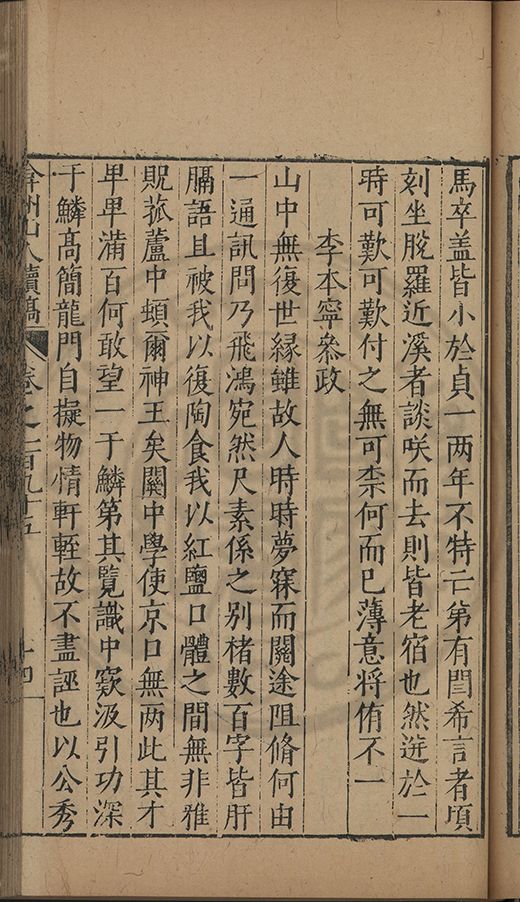 馬卒盖皆小於貞一两年不特亡第有閆希言者頃
刻坐脫羅近溪者談咲而去則皆老宿也然迸於一
時可歎可歎付之無可柰何而已薄意将侑不一
李本寧叅政
山中無復世緣雖故人時時夢寐而關途阻脩何由
一通訊問乃飛鴻宛然尺素係之别楮數百字皆肝
膈語且被我以復陶食我以紅鹽口體之間無非雅
貺菰蘆中頓爾神王矣關中學使京口無两此其才
早早滿百何敢望一于鱗第其覽識中窽汲引功深
于鱗髙簡龍門自擬物情軒輊故不盡誣也以公秀
弇州山人續稿 卷之一百九十五 十四